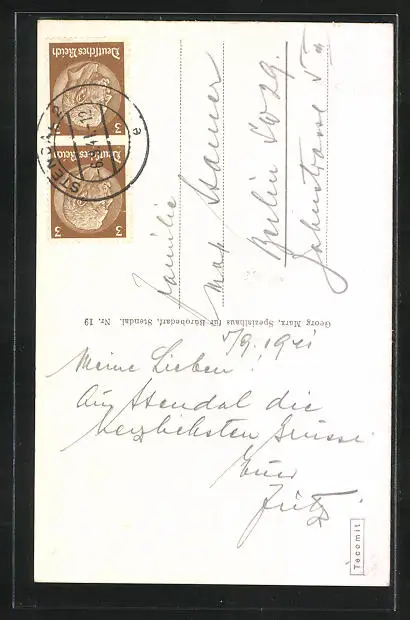 Deutsches Reich
3 3
Deutsches Reich
3 3
STENDAL 2
e
Familie
Max
Berlin SW 29.
Georg Marx, Spezialhaus für Bürobedarf, Stendal. Nr. 19
5/9. 1941
Meine Lieben!
Aus Stendal die
herzlichsten Grüsse
Euer
Fritz.
Tacomit